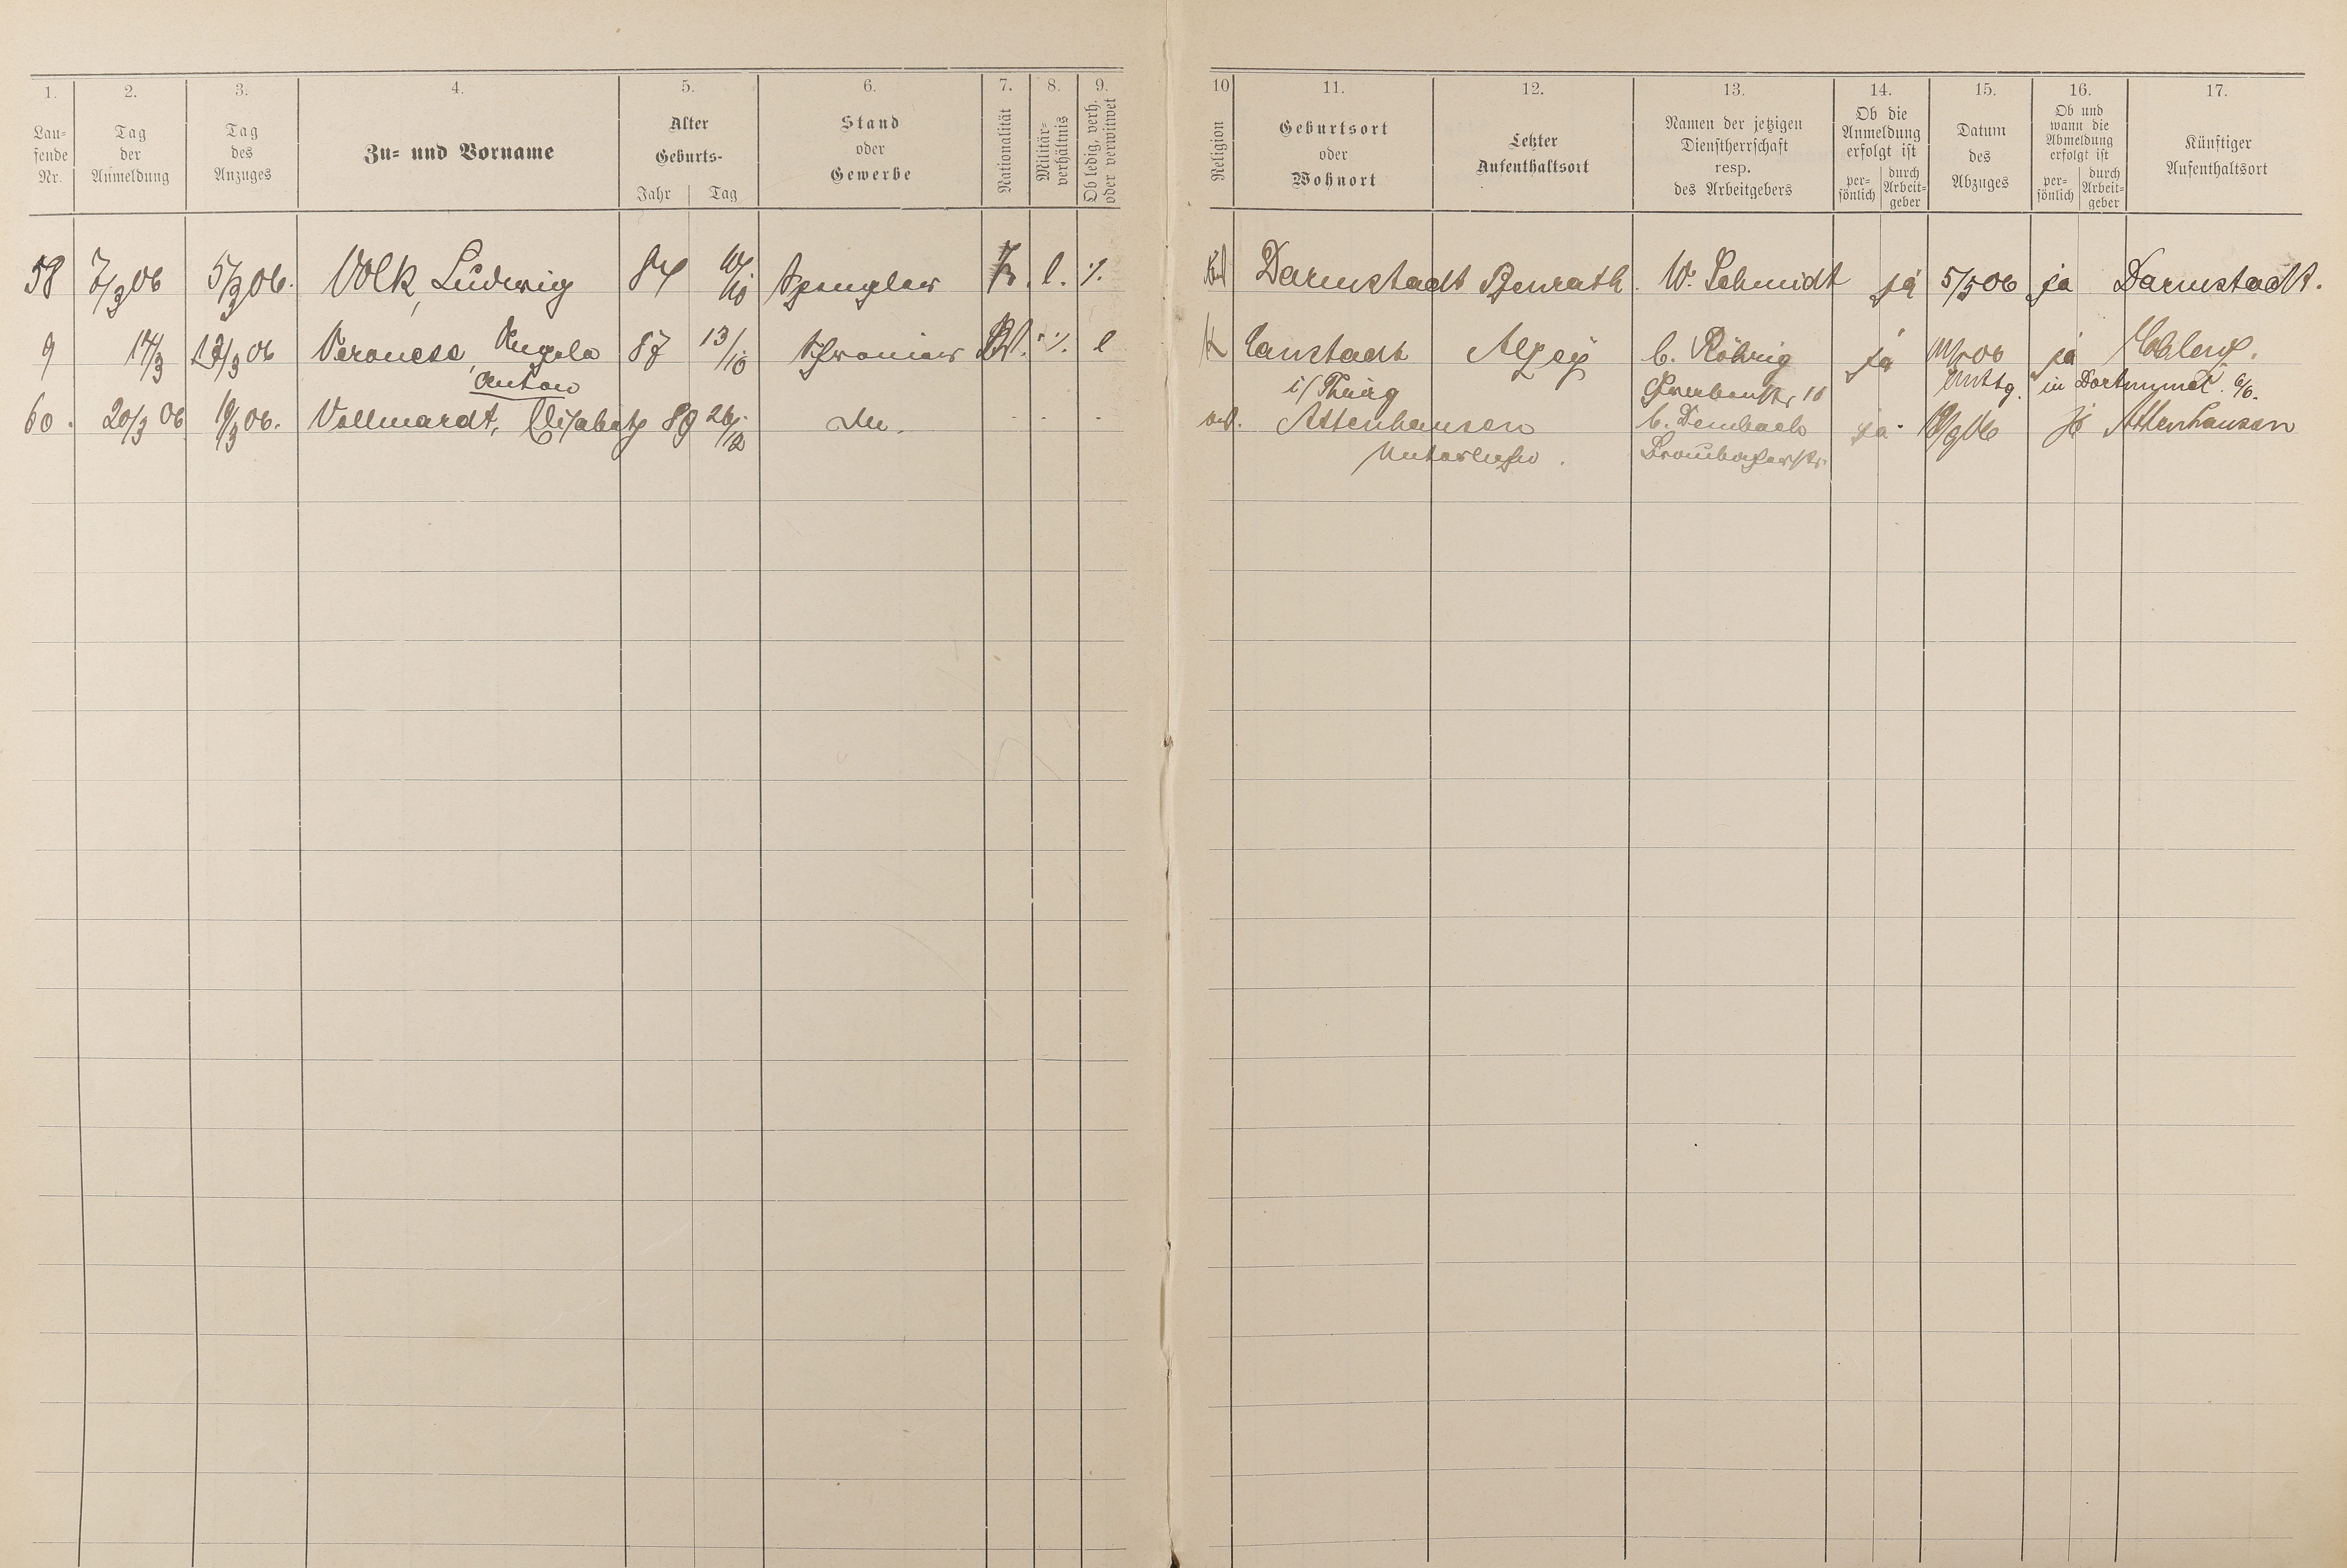 1. 2. 3. 4. 5. 6. 7. 8. 9. 10 11. 12. 13. 14. 15. 16. 17.
Lau=
fende
Nr.
Tag
der
Anmeldung
Tag
des
Anzuges
Zu= und Vorname
Alter
Geburts-
Jahr Tag
Stand
oder
Gewerbe
Nationalität
Militär-
verhältnis
Ob ledig, verh.
oder verwitwet
Religion
Geburtsort
oder
Wohnort
Letzter
Aufenthaltsort
Namen der jetzigen
Dienstherrschaft
resp.
des Arbeitgebers
Ob die
Anmeldung
erfolgt ist
per=
sönlich
durch
Arbeit=
geber
Datum
des
Abzuges
Ob und
wann die
Abmeldung
erfolgt ist
per=
sönlich
durch
Arbeit=
geber
Künftiger
Aufenthaltsort
58 7/3 06 5/3 06. Volk, Ludwig 84 10/10 Spengler l. ./. Darmstadt Benrath. W. Schmidt ja 5/5 06 ja Darmstadt.
9 14/3 13/3 06 Veronese, Angelo 87 13/10 ./. l K Canstadt Alzey C. Röhrig ja ja Coblenz.
Anton i/ Thürg 18 in Dortmund 6/6.
60. 20/3 06 Vollmardt, Elisabeth 89 26/12 Attenhausen C. Dembach ja ja Attenhausen
Unterlahn.